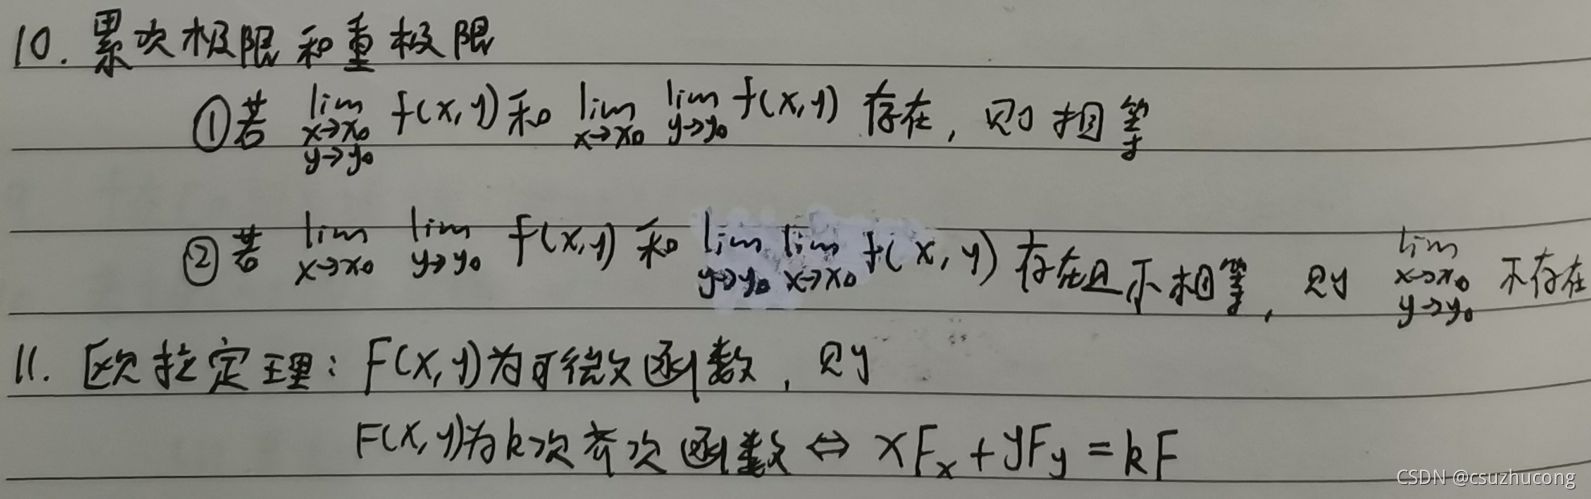 10. 累次极限和重极限
①若 lim x→x₀ y→y₀ f(x,y) 和 lim x→x₀ lim y→y₀ f(x,y) 存在, 则相等
②若 lim x→x₀ lim y→y₀ f(x,y) 和 lim y→y₀ lim x→x₀ f(x,y) 存在且不相等, 则 lim x→x₀ y→y₀ 不存在
11. 欧拉定理: F(x,y)为可微函数, 则
F(x,y)为k次齐次函数 ⇔ xFₓ+yF_y=kF
CSDN @csuzhucong